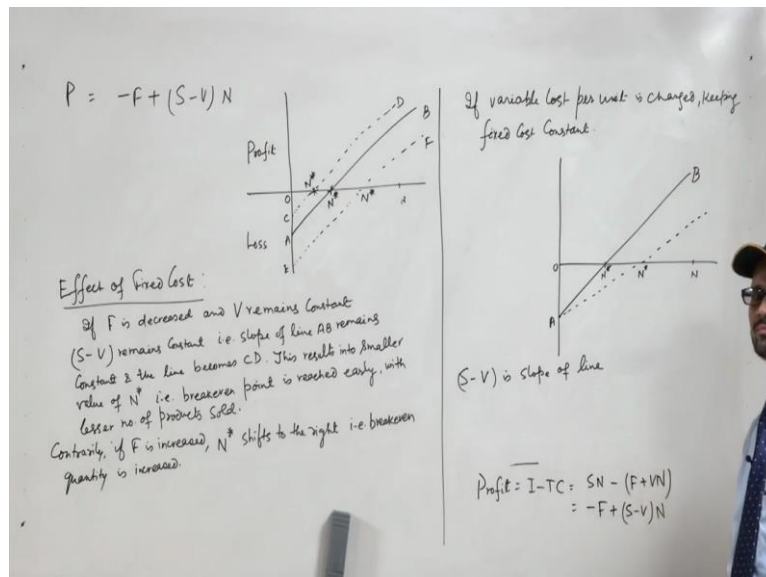 P = -F + (S-V) N
Profit
Loss
O
C
A
E
N*
N*
N*
D
B
F
Effect of Fixed Cost:
If F is decreased and V remains Constant
(S-V) remains Constant i.e. slope of line AB remains
Constant & the line becomes CD. This results into smaller
value of N* i.e. breakeven point is reached early, with
lesser no. of products sold.
Contrarily, if F is increased, N* shifts to the right i.e. breakeven
quantity is increased.
If variable Cost per unit is changed, keeping
fixed Cost Constant.
O
A
B
N*
N*
N
(S-V) is slope of line
Profit = I-TC = SN - (F+VN)
= -F+(S-V)N